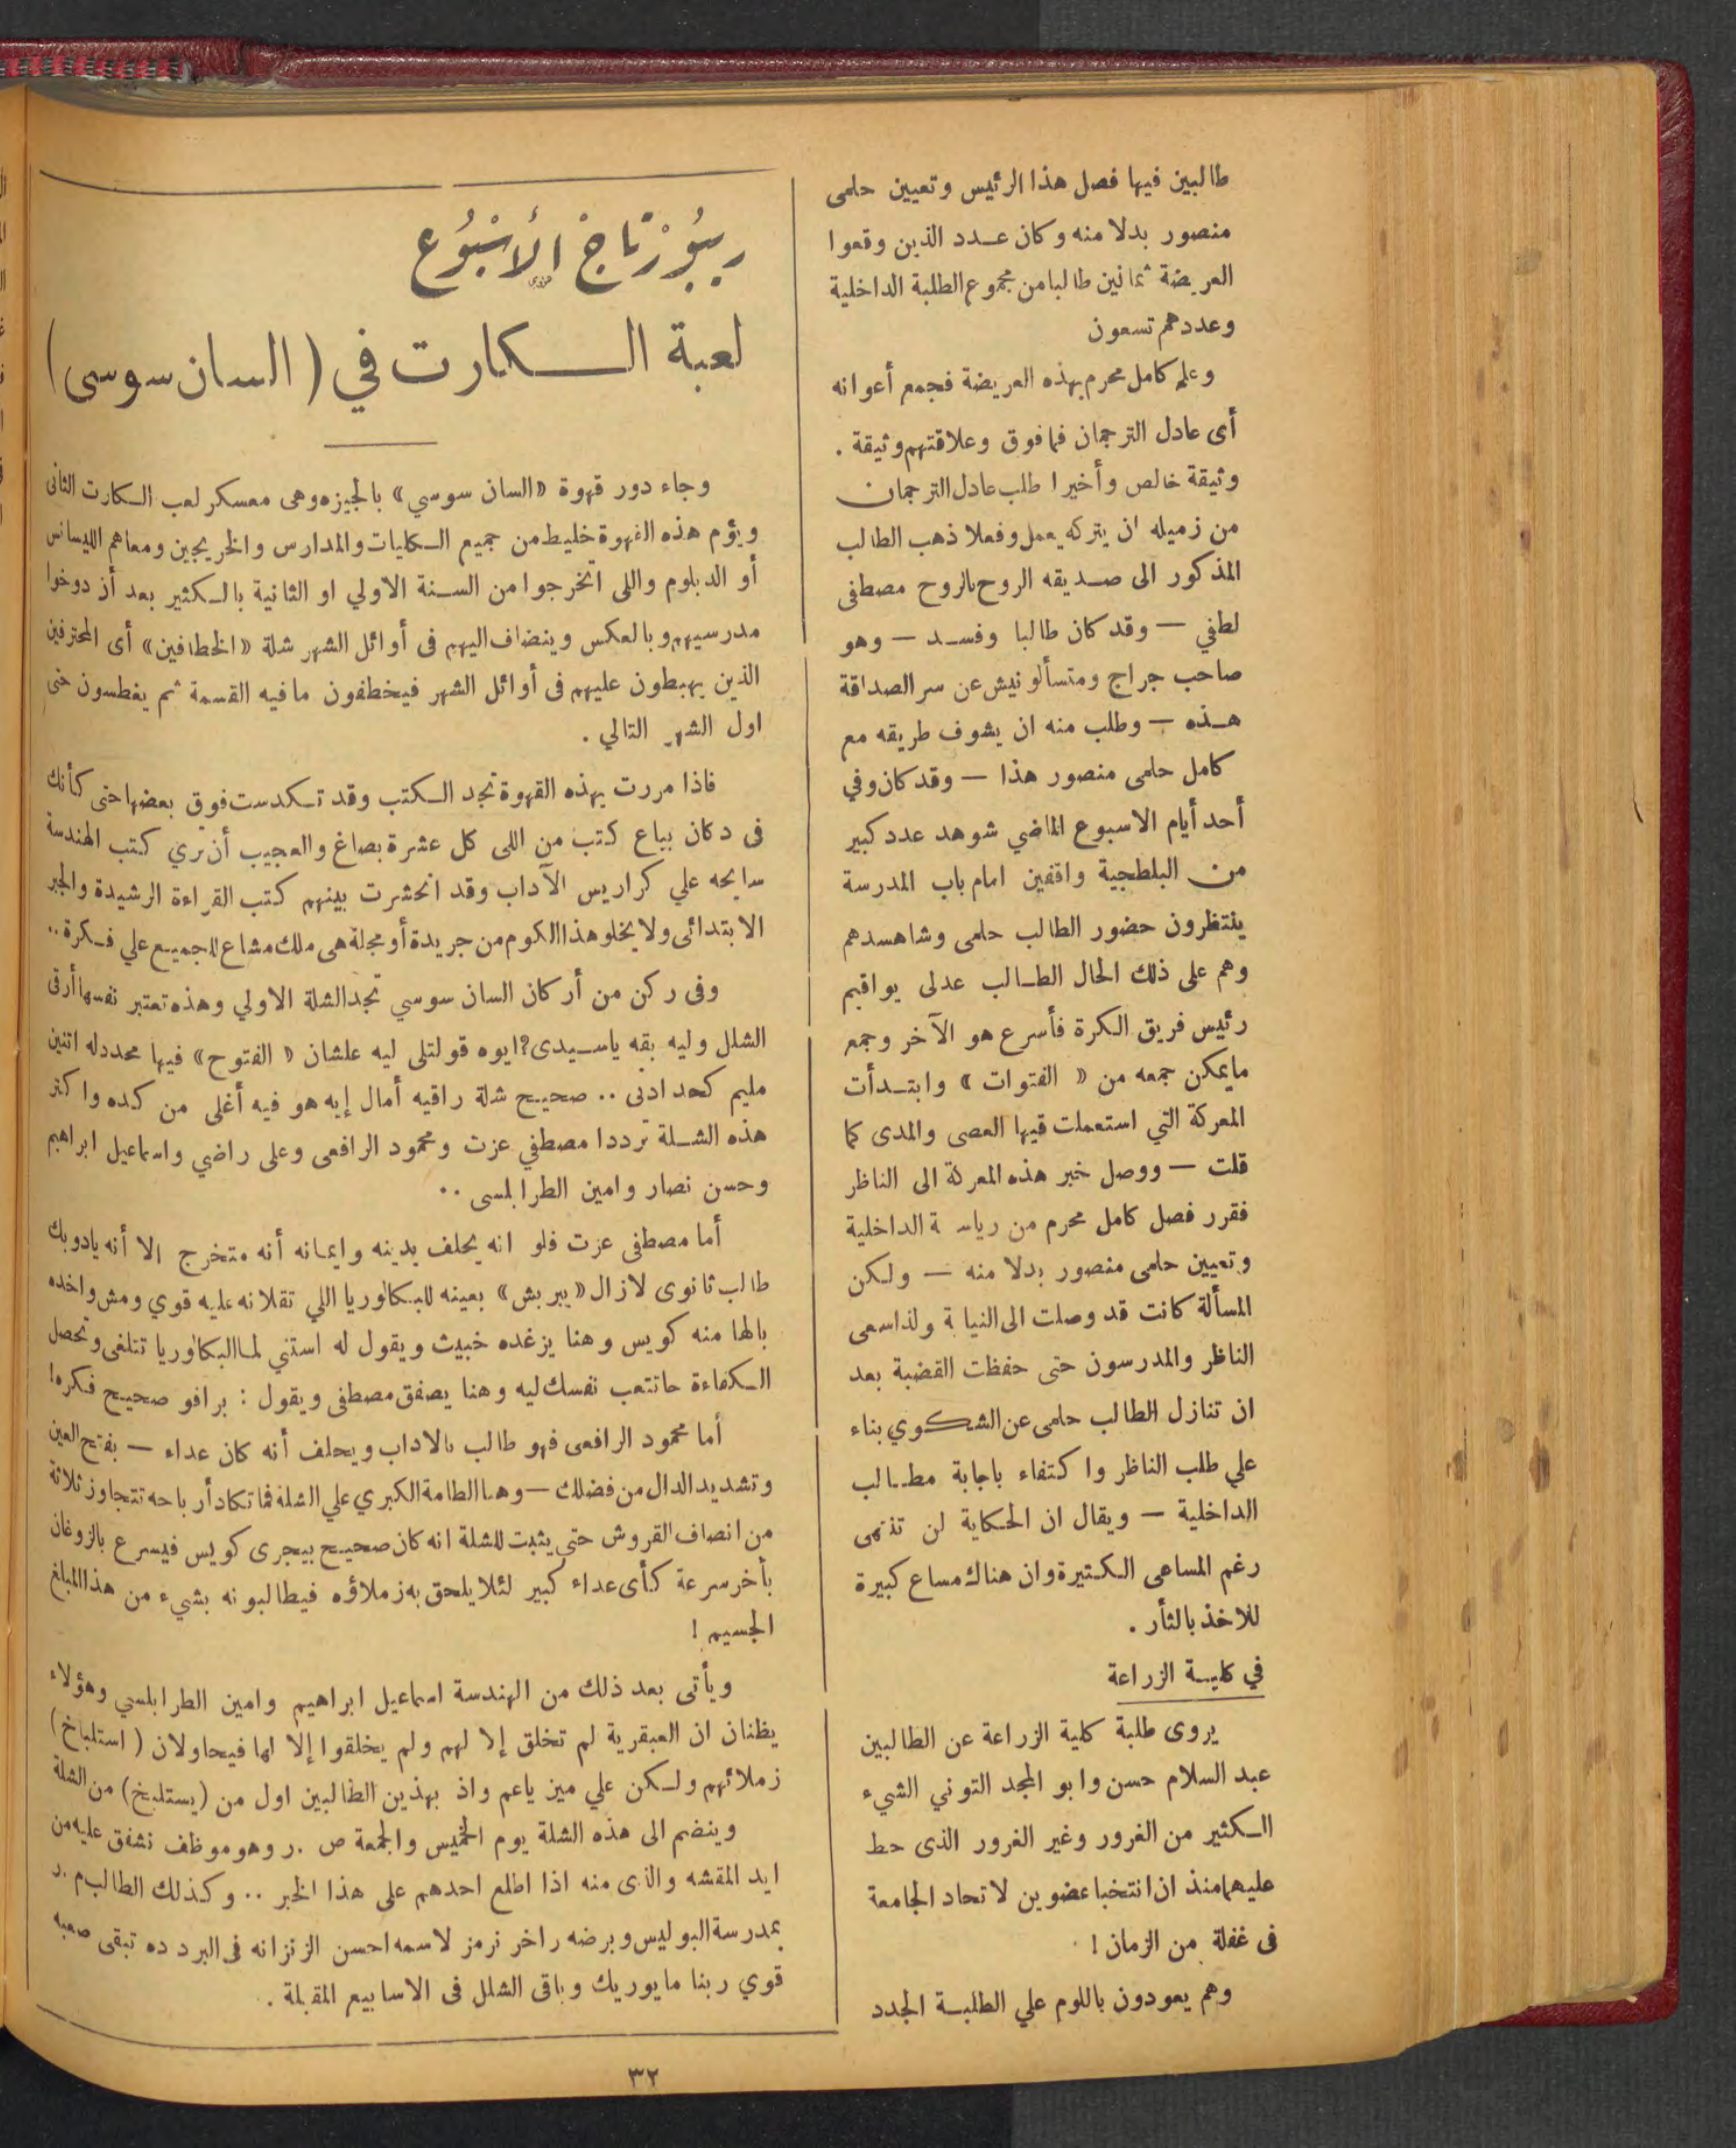 طالبين فيها فصل هذا الرئيس وتعيين حلمى
منصور بدلا منه وكان عدد الذين وقعوا
العريضة ثمانين طالبا من مجموع الطلبة الداخلية
وعددهم تسعون
وعلم كامل محرم بهذه العريضة فجمع أعوانه
أى عادل الترجمان فما فوق وعلاقتهم وثيقة .
وثيقة خالص وأخيرا طلب عادل الترجمان
من زميله ان يتركه يعمل وفعلا ذهب الطالب
المذكور الى صديقه الروح بالروح مصطفى
لطفي — وقد كان طالبا وفسد — وهو
صاحب جراج ومتسألونيش عن سر الصداقة
هذه — وطلب منه ان يشوف طريقه مع
كامل حلمى منصور هذا — وقد كان وفي
أحد أيام الاسبوع الماضي شوهد عدد كبير
من البلطجية واقفين امام باب المدرسة
ينتظرون حضور الطالب حلمى وشاهسدهم
وهم على ذلك الحال الطالب عدلى يواقيم
رئيس فريق الكرة فأسرع هو الآخر وجمع
مايمكن جمعه من « الفتوات » وابتدأت
المعركة التي استعملت فيها العصى والمدى كما
قلت — ووصل خبر هذه المعركة الى الناظر
فقرر فصل كامل محرم من رياسة الداخلية
وتعيين حلمى منصور بدلا منه — ولكن
المسألة كانت قد وصلت الى النيابة ولذا سعى
الناظر والمدرسون حتى حفظت القضية بعد
ان تنازل الطالب حلمى عن الشكوي بناء
علي طلب الناظر واكتفاء باجابة مطالب
الداخلية — ويقال ان الحكاية لن تنتهى
رغم المساعى الكثيرة وان هناك مساع كبيرة
للاخذ بالثأر .
في كلية الزراعة
يروى طلبة كلية الزراعة عن الطالبين
عبد السلام حسن وابو المجد التوني الشيء
الكثير من الغرور وغير الغرور الذى حط
عليهما منذ ان انتخبا عضوين لاتحاد الجامعة
فى غفلة من الزمان !
وهم يعودون باللوم علي الطلبة الجدد
ريبورتاج الأسبوع
لعبة الكارت في ( السان سوسى )
وجاء دور قهوة «السان سوسي» بالجيزه وهى معسكر لعب الكارت الثانى
ويؤم هذه القهوة خليط من جميع الكليات والمدارس والخريجين ومعاهم الليسانس
أو الدبلوم واللى اتخرجوا من السنة الاولي او الثانية بالكثير بعد أن دوخوا
مدرسيهم وبالعكس وينضاف اليهم فى أوائل الشهر شلة «الخطافين» أى المحترفين
الذين يهبطون عليهم فى أوائل الشهر فيخطفون مافيه القسمة ثم يغطسون حتى
اول الشهر التالي .
فاذا مررت بهذه القهوة تجد الكتب وقد تكدست فوق بعضها حتى كأنك
فى دكان بياع كتب من اللى كل عشرة بصاغ والعجيب أن ترى كتب الهندسة
سايحه علي كراريس الآداب وقد انحشرت بينهم كتب القراءة الرشيدة والجبر
الابتدائى ولا يخلو هذا الكوم من جريدة أو مجلة هى ملك مشاع للجميع علي فكرة..
وفى ركن من أركان السان سوسي تجد الشلة الاولي وهذه تعتبر نفسها أرقى
الشلل وليه بقه ياسيدى؟ ايوه قولتلى ليه علشان « الفتوح » فيها محددله اتنين
مليم كحد ادنى .. صحيح شلة راقيه أمال إيه هو فيه أغلى من كده واكثر
هذه الشلة ترددا مصطفي عزت ومحمود الرافعى وعلى راضي واسماعيل ابراهيم
وحسن نصار وامين الطرابلسى ..
أما مصطفى عزت فلو انه يحلف بدينه وايمانه أنه متخرج الا أنه يادوبك
طالب ثانوى لازال «يبربش» بعينه للبكالوريا اللي تقلانه عليه قوي ومش واخده
بالها منه كويس وهنا يزغده خبيث ويقول له استني لما البكالوريا تتلغى وتحصل
الكفاءة حاتتعب نفسك ليه وهنا يصفق مصطفى ويقول : برافو صحيح فكره!
أما محمود الرافعى فهو طالب بالاداب ويحلف أنه كان عداء — بفتح العين
وتشديد الدال من فضلك — وهنا الطامة الكبري علي الشلة فما تكاد أرباحه تتجاوز ثلاثة
من انصاف القروش حتى يثبت للشلة انه كان صحيح بيجرى كويس فيسرع بالزوغان
بأخر سرعة كأى عداء كبير لئلا يلحق به زملاؤه فيطالبونه بشيء من هذا المبلغ
الجسيم !
ويأتى بعد ذلك من الهندسة اسماعيل ابراهيم وامين الطرابلسي وهؤلاء
يظنان ان العبقرية لم تخلق إلا لهم ولم يخلقوا إلا لها فيحاولان ( استلباخ )
زملائهم ولكن علي مين ياعم واذ بهذين الطالبين اول من (يستلبخ) من الشلة
وينضم الى هذه الشلة يوم الخميس والجمعة ص .ر وهو موظف نشفق عليه من
ايد المقشه والذى منه اذا اطلع احدهم على هذا الخبر .. وكذلك الطالب م .د
بمدرسة البوليس وبرضه راخر نرمز لاسمه احسن الزنزانه فى البرد ده تبقى صعبه
قوي ربنا مايوريك وباقى الشلل فى الاسابيع المقبلة .
٣٢